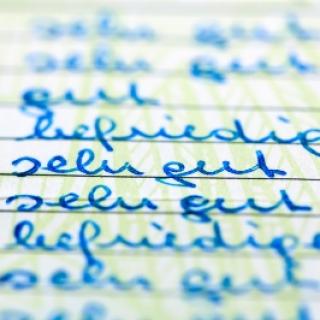 sehr gut
sehr gut
gut
befriedig
sehr gut
sehr gut
befriedige
sehr gut